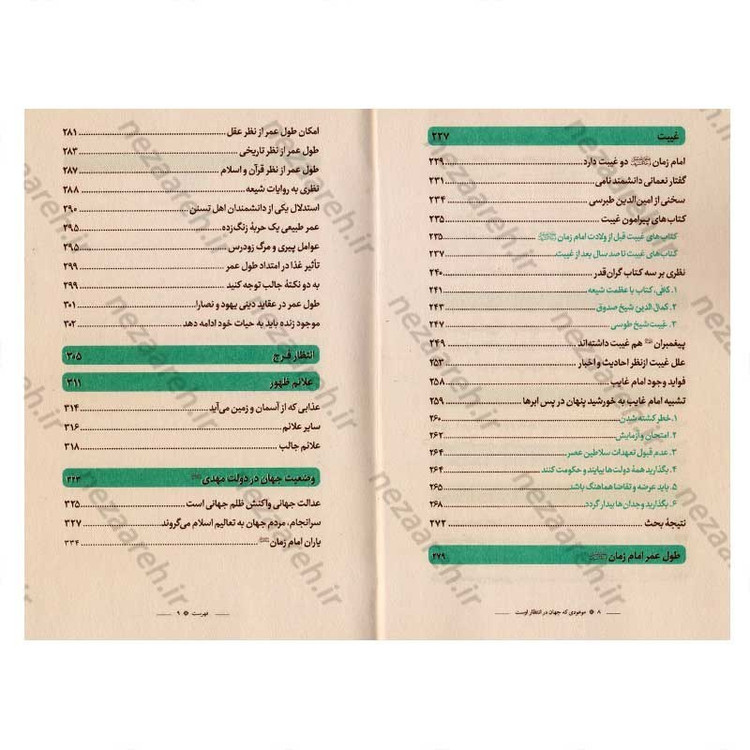 غیبت ۲۲۷
امام زمان دو غیبت دارد ۲۲۹
گفتار نعمانی دانشمند نامی ۲۳۱
سخنی از امین‌الدین طبرسی ۲۳۴
کتاب‌های پیرامون غیبت ۲۳۵
کتاب‌های غیبت قبل از ولادت امام زمان ۲۳۵
کتاب‌های غیبت تا صد سال بعد از غیبت ۲۳۷
نظری بر سه کتاب گران‌قدر ۲۴۰
۱. کافی، کتاب با عظمت شیعه ۲۴۱
۲. کمال‌الدین شیخ صدوق ۲۴۳
۳. غیبت شیخ طوسی ۲۴۷
پیغمبران هم غیبت داشته‌اند ۲۴۹
علل غیبت از نظر احادیث و اخبار ۲۵۳
فواید وجود امام غایب ۲۵۸
تشبیه امام غایب به خورشید پنهان در پس ابرها ۲۵۹
۱. خطر کشته شدن ۲۶۰
۲. امتحان و آزمایش ۲۶۲
۳. عدم قبول تعهدات سلاطین عصر ۲۶۴
۴. بگذارید همهٔ دولت‌ها بیایند و حکومت کنند ۲۶۴
۵. باید عرضه و تقاضا هماهنگ باشد ۲۶۵
۶. بگذارید وجدان‌ها بیدار گردد ۲۶۸
نتیجهٔ بحث ۲۷۲
طول عمر امام زمان ۲۷۹
۸ موعودی که جهان در انتظار اوست
امکان طول عمر از نظر عقل ۲۸۱
طول عمر از نظر تاریخی ۲۸۳
طول عمر از نظر قرآن و اسلام ۲۸۷
نظری به روایات شیعه ۲۸۸
استدلال یکی از دانشمندان اهل تسنن ۲۹۰
عمر طبیعی یک حربهٔ زنگ‌زده ۲۹۵
عوامل پیری و مرگ زودرس ۲۹۵
تأثیر غذا در امتداد طول عمر ۲۹۹
به دو نکتهٔ جالب توجه کنید ۲۹۹
طول عمر در عقاید دینی یهود و نصارا ۳۰۱
موجود زنده باید به حیات خود ادامه دهد ۳۰۲
انتظار فرج ۳۰۵
علائم ظهور ۳۱۱
عذابی که از آسمان و زمین می‌آید ۳۱۴
سایر علائم ۳۱۶
علائم جالب ۳۱۸
وضعیت جهان در دولت مهدی ۳۲۳
عدالت جهانی واکنش ظلم جهانی است ۳۲۵
سرانجام، مردم جهان به تعالیم اسلام می‌گروند ۳۲۷
یاران امام زمان ۳۳۴
فهرست ۹
nezaareh.ir